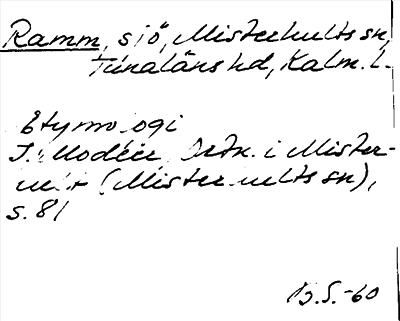 Ramm, sjö, Misterhults sn,
Tunaläns hd, Kalm. l.
Etymologi
I. Modéer, Ortn. i Mister-
hult (Misterhults sn),
s. 81
B.S.-60